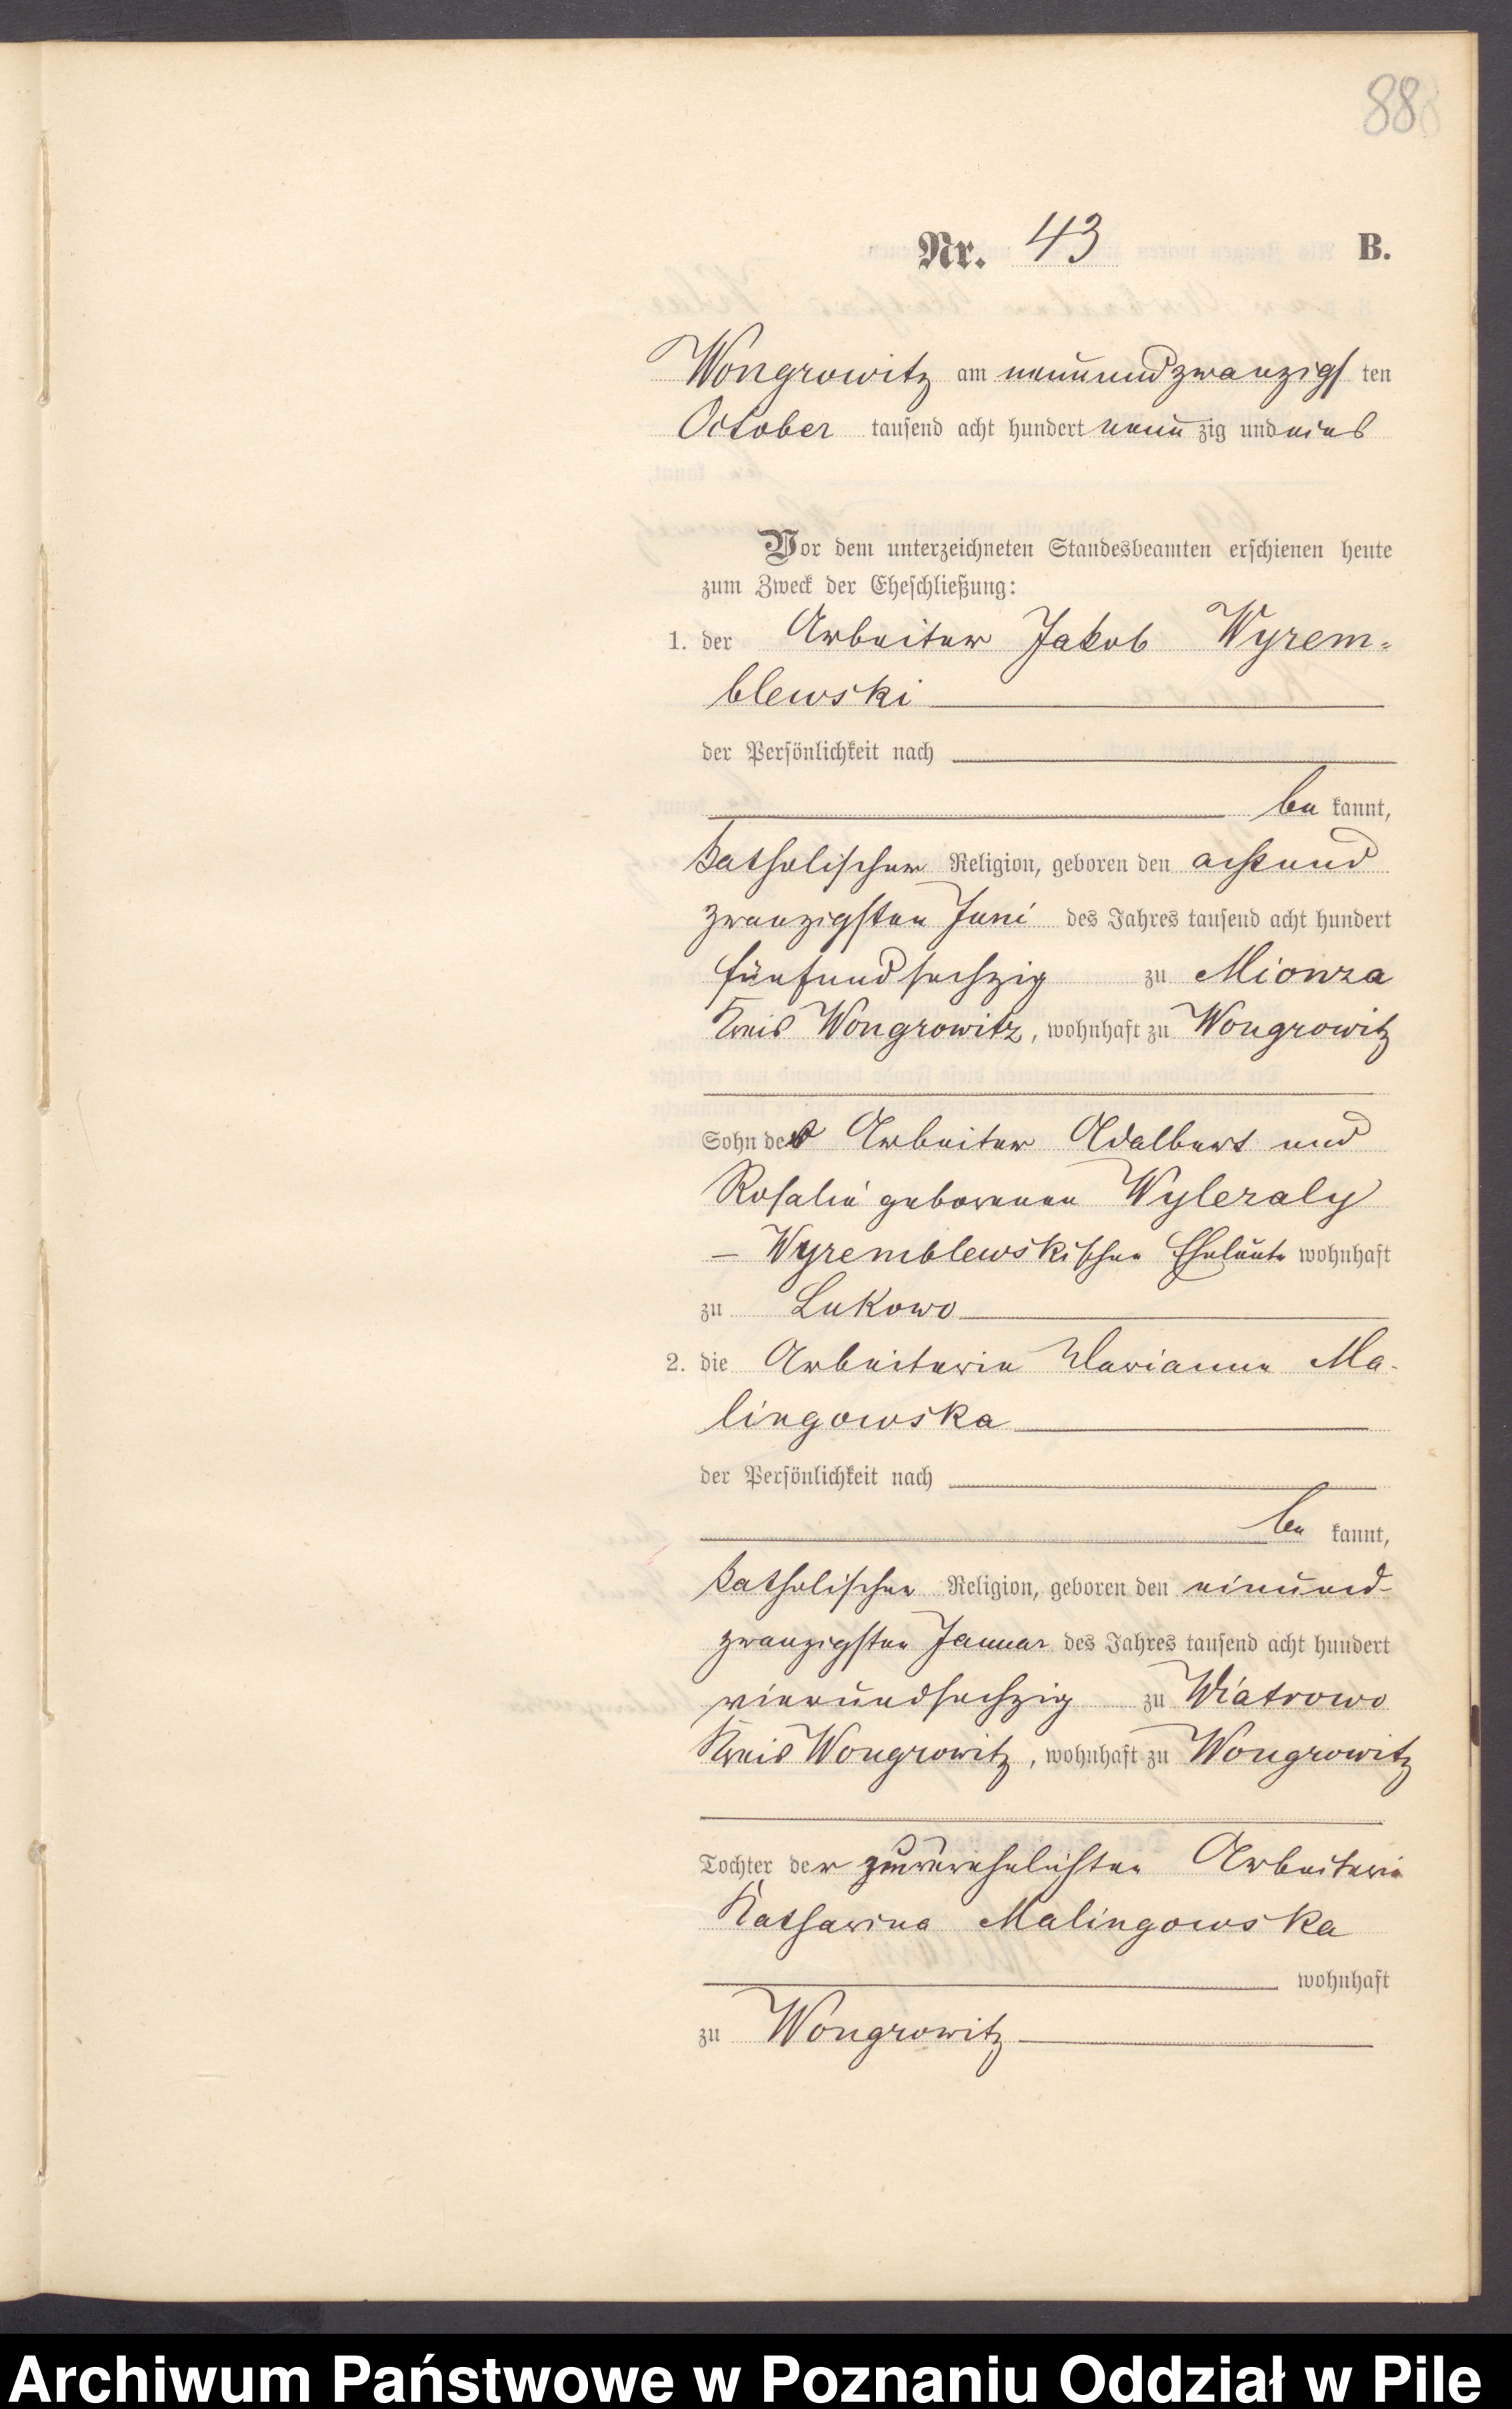 88
Nr. 43 B.
Wongrowitz am neunundzwanzigsten
October tausend acht hundert neunzig und eins
Vor dem unterzeichneten Standesbeamten erschienen heute
zum Zweck der Eheschließung:
1. der Arbeiter Jakob Wyrem=
blewski
der Persönlichkeit nach
be kannt,
katholischer Religion, geboren den achtund
zwanzigsten Juni des Jahres tausend acht hundert
fünfundsechzig zu Mionza
Kreis Wongrowitz, wohnhaft zu Wongrowitz
Sohn des Arbeiter Adalbert und
Rosalie geborenen Wyleraly
– Wyremblewskischen Eheleute wohnhaft
zu Lukowo
2. die Arbeiterin Marianna Ma-
lingowska
der Persönlichkeit nach
be kannt,
katholischer Religion, geboren den einund-
zwanzigsten Januar des Jahres tausend acht hundert
vierundsechzig zu Wiatrowo
Kreis Wongrowitz, wohnhaft zu Wongrowitz
Tochter der Arbeiterin
Katharina Malingowska
wohnhaft
zu Wongrowitz
Archiwum Państwowe w Poznaniu Oddział w Pile